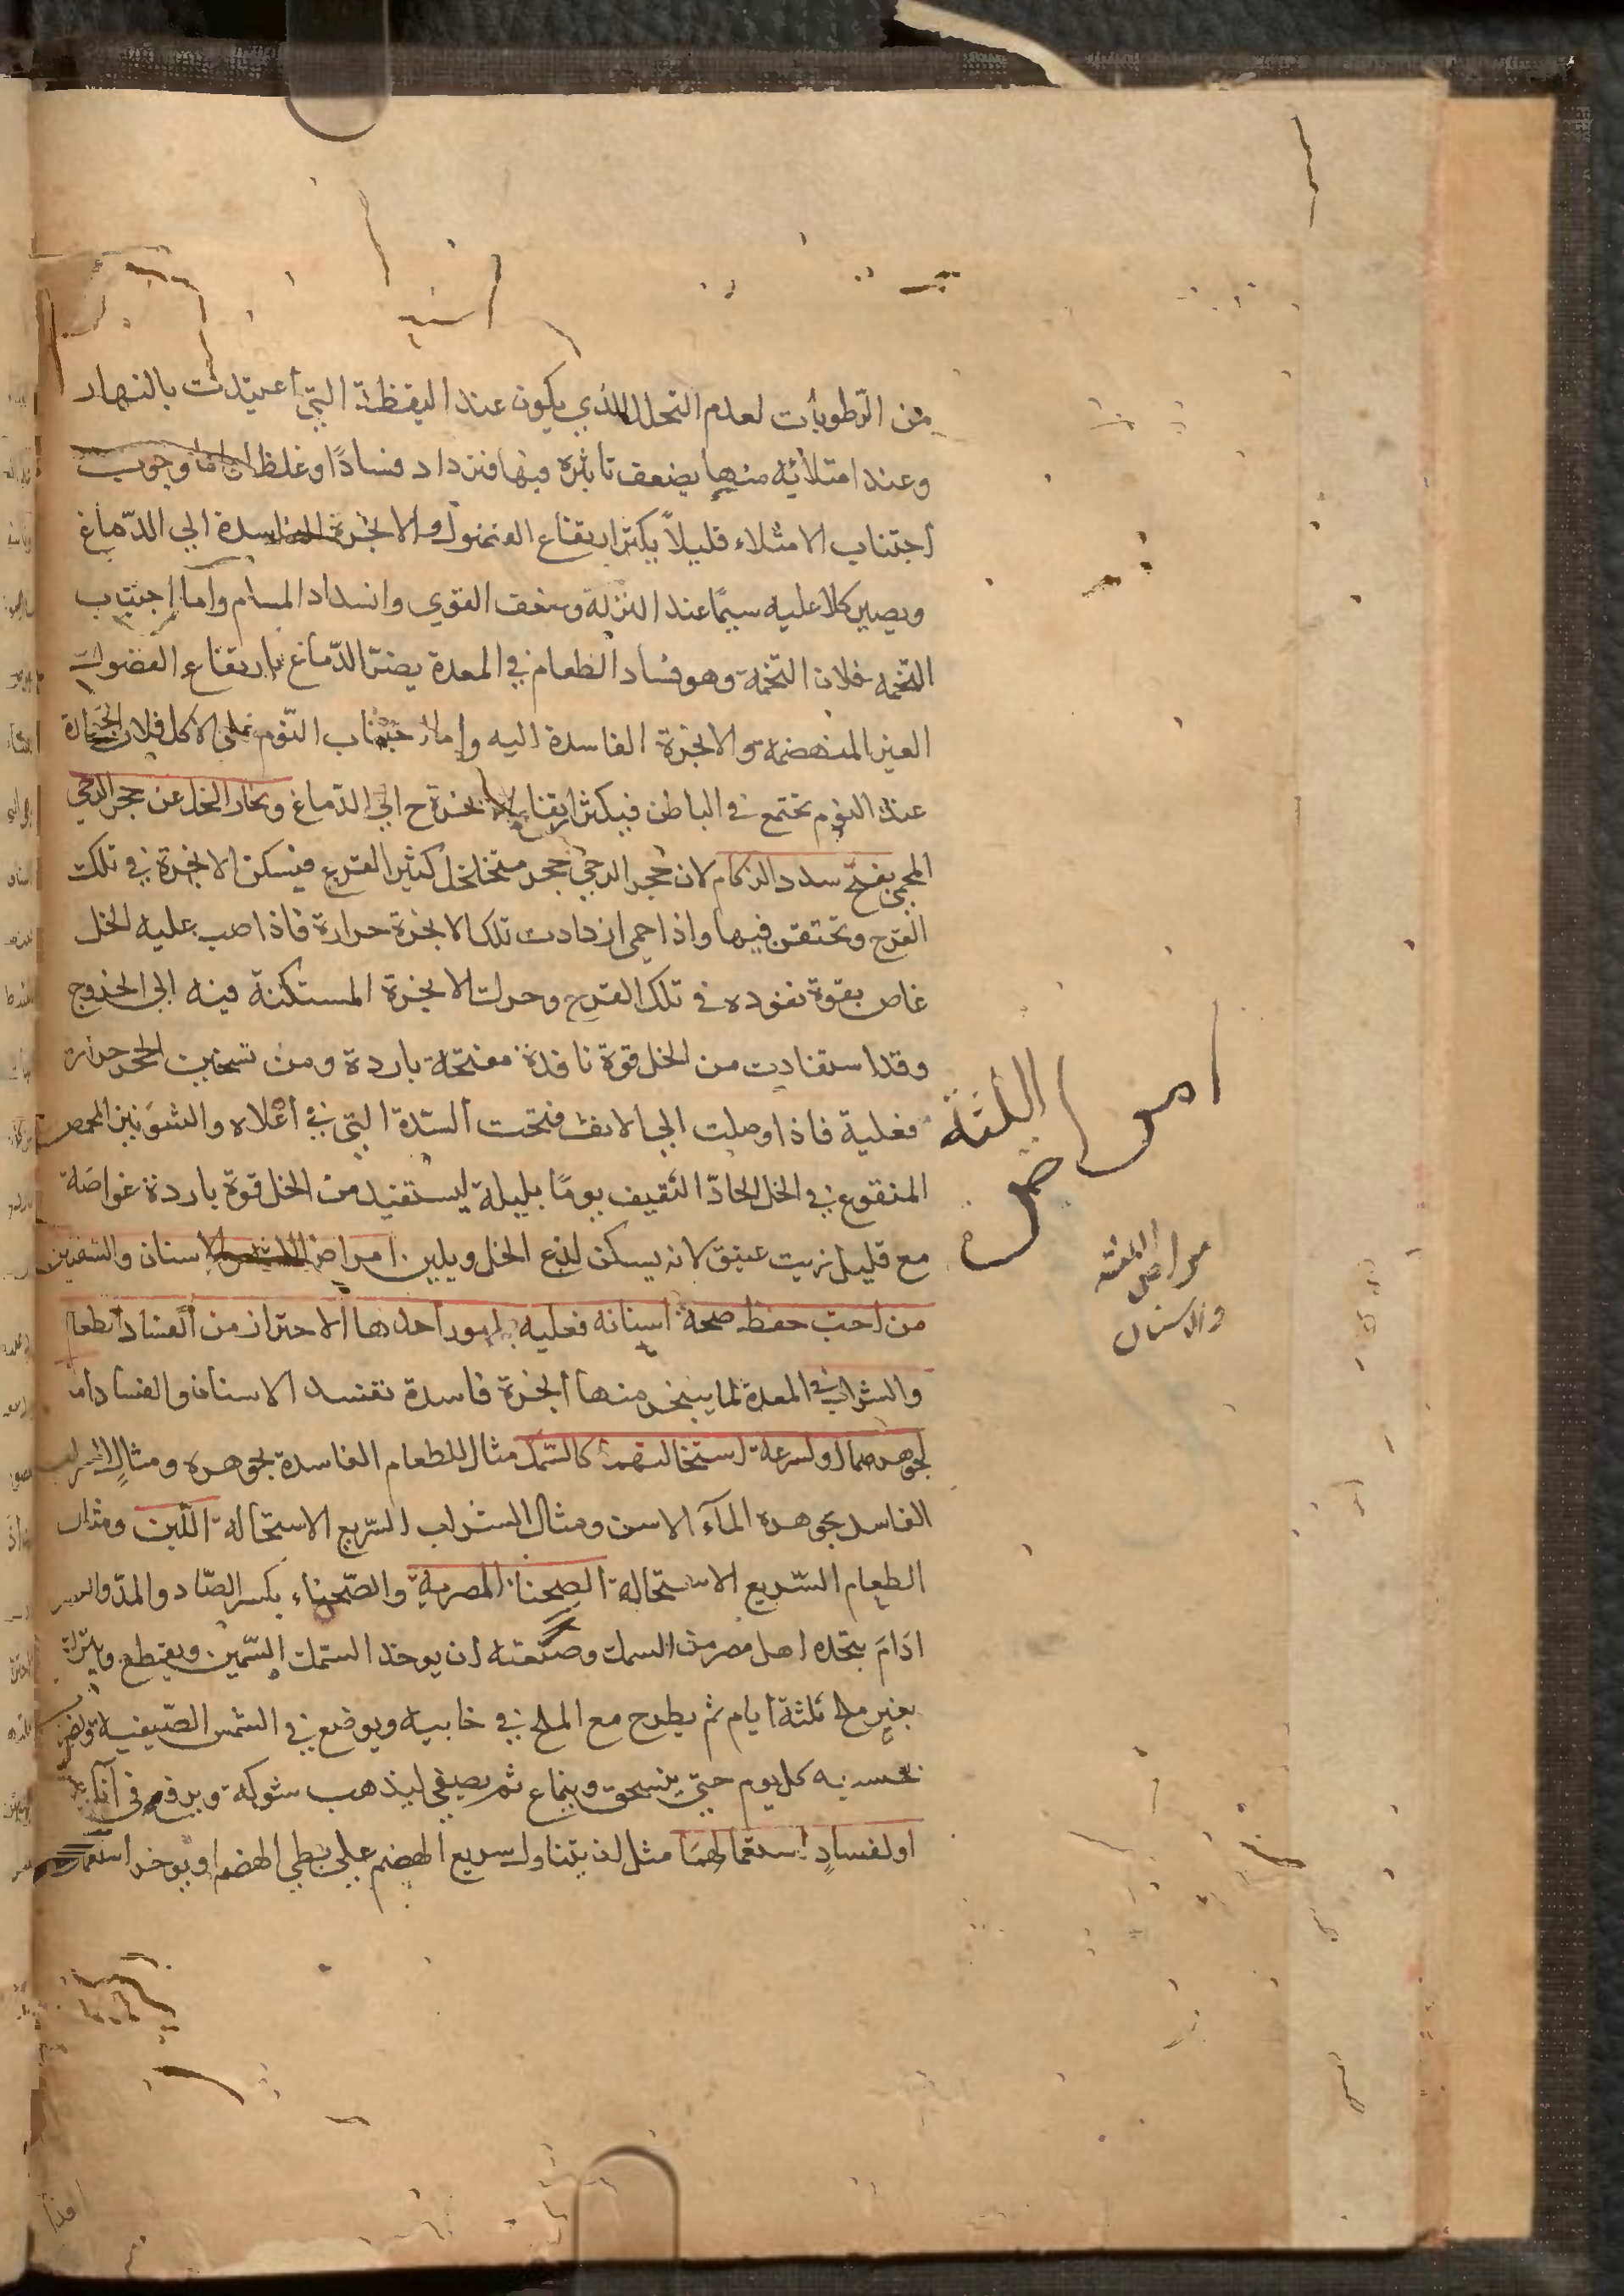 من الرطوبات لعدم التحلل الذي يكون عند اليقظة التي أعتيدت بالنهار
وعند امتلائه منها يضعف تاثيره فيها فتزداد فسادًا وغلظا واما وجوب
اجتناب الامتلاء قليلاً يكثر ارتفاع الفضول والابخرة الفاسدة الي الدّماغ
ويصير كلا عليه سيمًا عند النزلة وضعف القوي وانسداد المسام وأما اجتناب
التخمه فلان التخمة وهو فساد الطعام في المعدة يضر الدّماغ بارتفاع الفضولات
الغير المنهضمة والابخرة الفاسدة اليه واما اجتناب النّوم على الاكل فلان الحرارة
عند النوم تجتمع في الباطن فيكثر ارتفاع الابخرة ح الي الدّماغ وبخار الخل عن حجر الرحي
المحمي يفتح سدد الزكام لان حجر الرحي حجر متخلخل كثير الفرج فيسكن الابخرة في تلك
الفرج وتحتقن فيها واذا حمي ازدادت تلك الابخرة حرارة فاذا صب عليه الخل
غاص بقوة نفوده في تلك الفرج وحركت الابخرة المستكنة فيه الى الخروج
وقد استفادت من الخل قوة نافدة مفتحة باردة ومن تسخين الحجر حرارة
فعلية فاذا وصلت الي الانف فتحت السّدة التي في أعلاه والشونيز المحمص
المنقوع في الخل الحادّ الثقيف يومًا بليلة ليستفيد من الخل قوة باردة غواصة
مع قليل زيت عتيق لانه يسكن لذع الخل ويلين امراض اللثة والاسنان والشفتين
من احبّ حفظ صحة اسنانه فعليه بامور احدها الاحتراز من الفساد الطعام
والشراب في المعدة لما يتبخر منها ابخرة فاسدة تفسد الاسنان والفساد اما
لجوهرهما او لسرعة استحالتهما كالسّمك مثال للطعام الفاسدة بجوهره ومثال الشراب
الفاسد بجوهره المآء الاسن ومثال الشراب السّريع الاستحالة اللّبن ومثال
الطعام السّريع الاستحالة الصحناة المصرية والصّحناء بكسر الصّاد والمدّ والقصر
ادَامَ يتخده اهل مصر من السمك وصنعته ان يوخذ السّمك السّمين ويقطع ويترك
بغير ملح ثلثة ايام ثم يطرح مع الملح في خابية ويوضع في الشمس الصّيفية ويضرب
بخسبه كل يوم حتي ينسحق وينماع ثم يصفي ليذهب شوكه ويرفع في آنية
او لفسادِ استعمالهما مثل ان يتناول سريع الهضم على بطي الهضم او يوخر استعمال
امراض اللثة
مراض اللثة
والاسنان